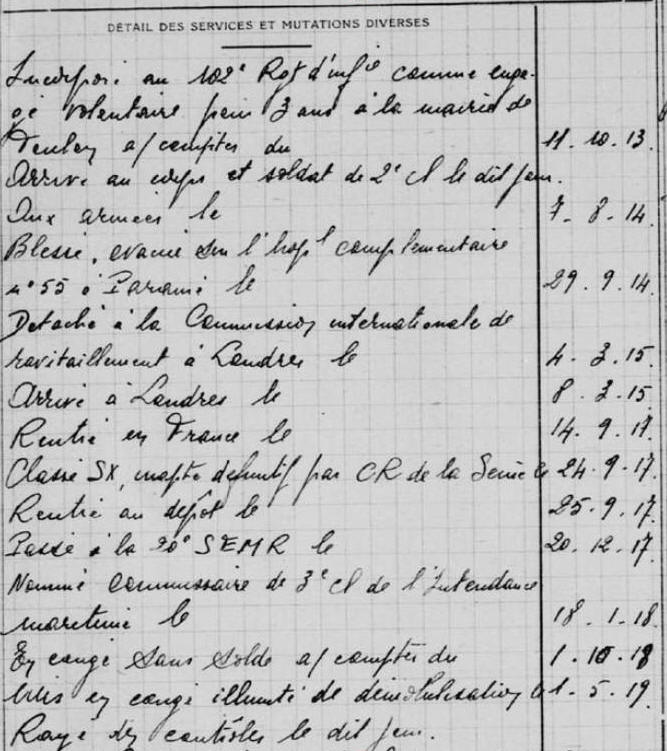 DÉTAIL DES SERVICES ET MUTATIONS DIVERSES
Incorporé au 102e Rgt d'infie comme enga-
gé volontaire pour 3 ans à la mairie de
a/ compter du 11. 10. 13.
Arrivé au corps et soldat de 2e cl le dit jour.
Aux armées le 7. 8. 14.
Blessé, évacué sur l'hopl complémentaire
n° 55 à Paramé le 29. 9. 14.
Détaché à la Commission internationale de
ravitaillement à Londres le 4. 3. 15.
Arrivé à Londres le 8. 3. 15
Rentré en France le 14. 9. 17.
Classé SX, inapte définitif par CR de la Seine le 24. 9. 17.
Rentré au dépôt le 25. 9. 17.
Passé à la 20e SEMR le 20. 12. 17.
Nommé Commissaire de 3e cl de l'Intendance
maritime le 18. 1. 18.
En congé sans solde a/ compter du 1. 10. 18
Mis en congé illimité de démobilisation le 1. 5. 19.
Rayé des contrôles le dit jour.